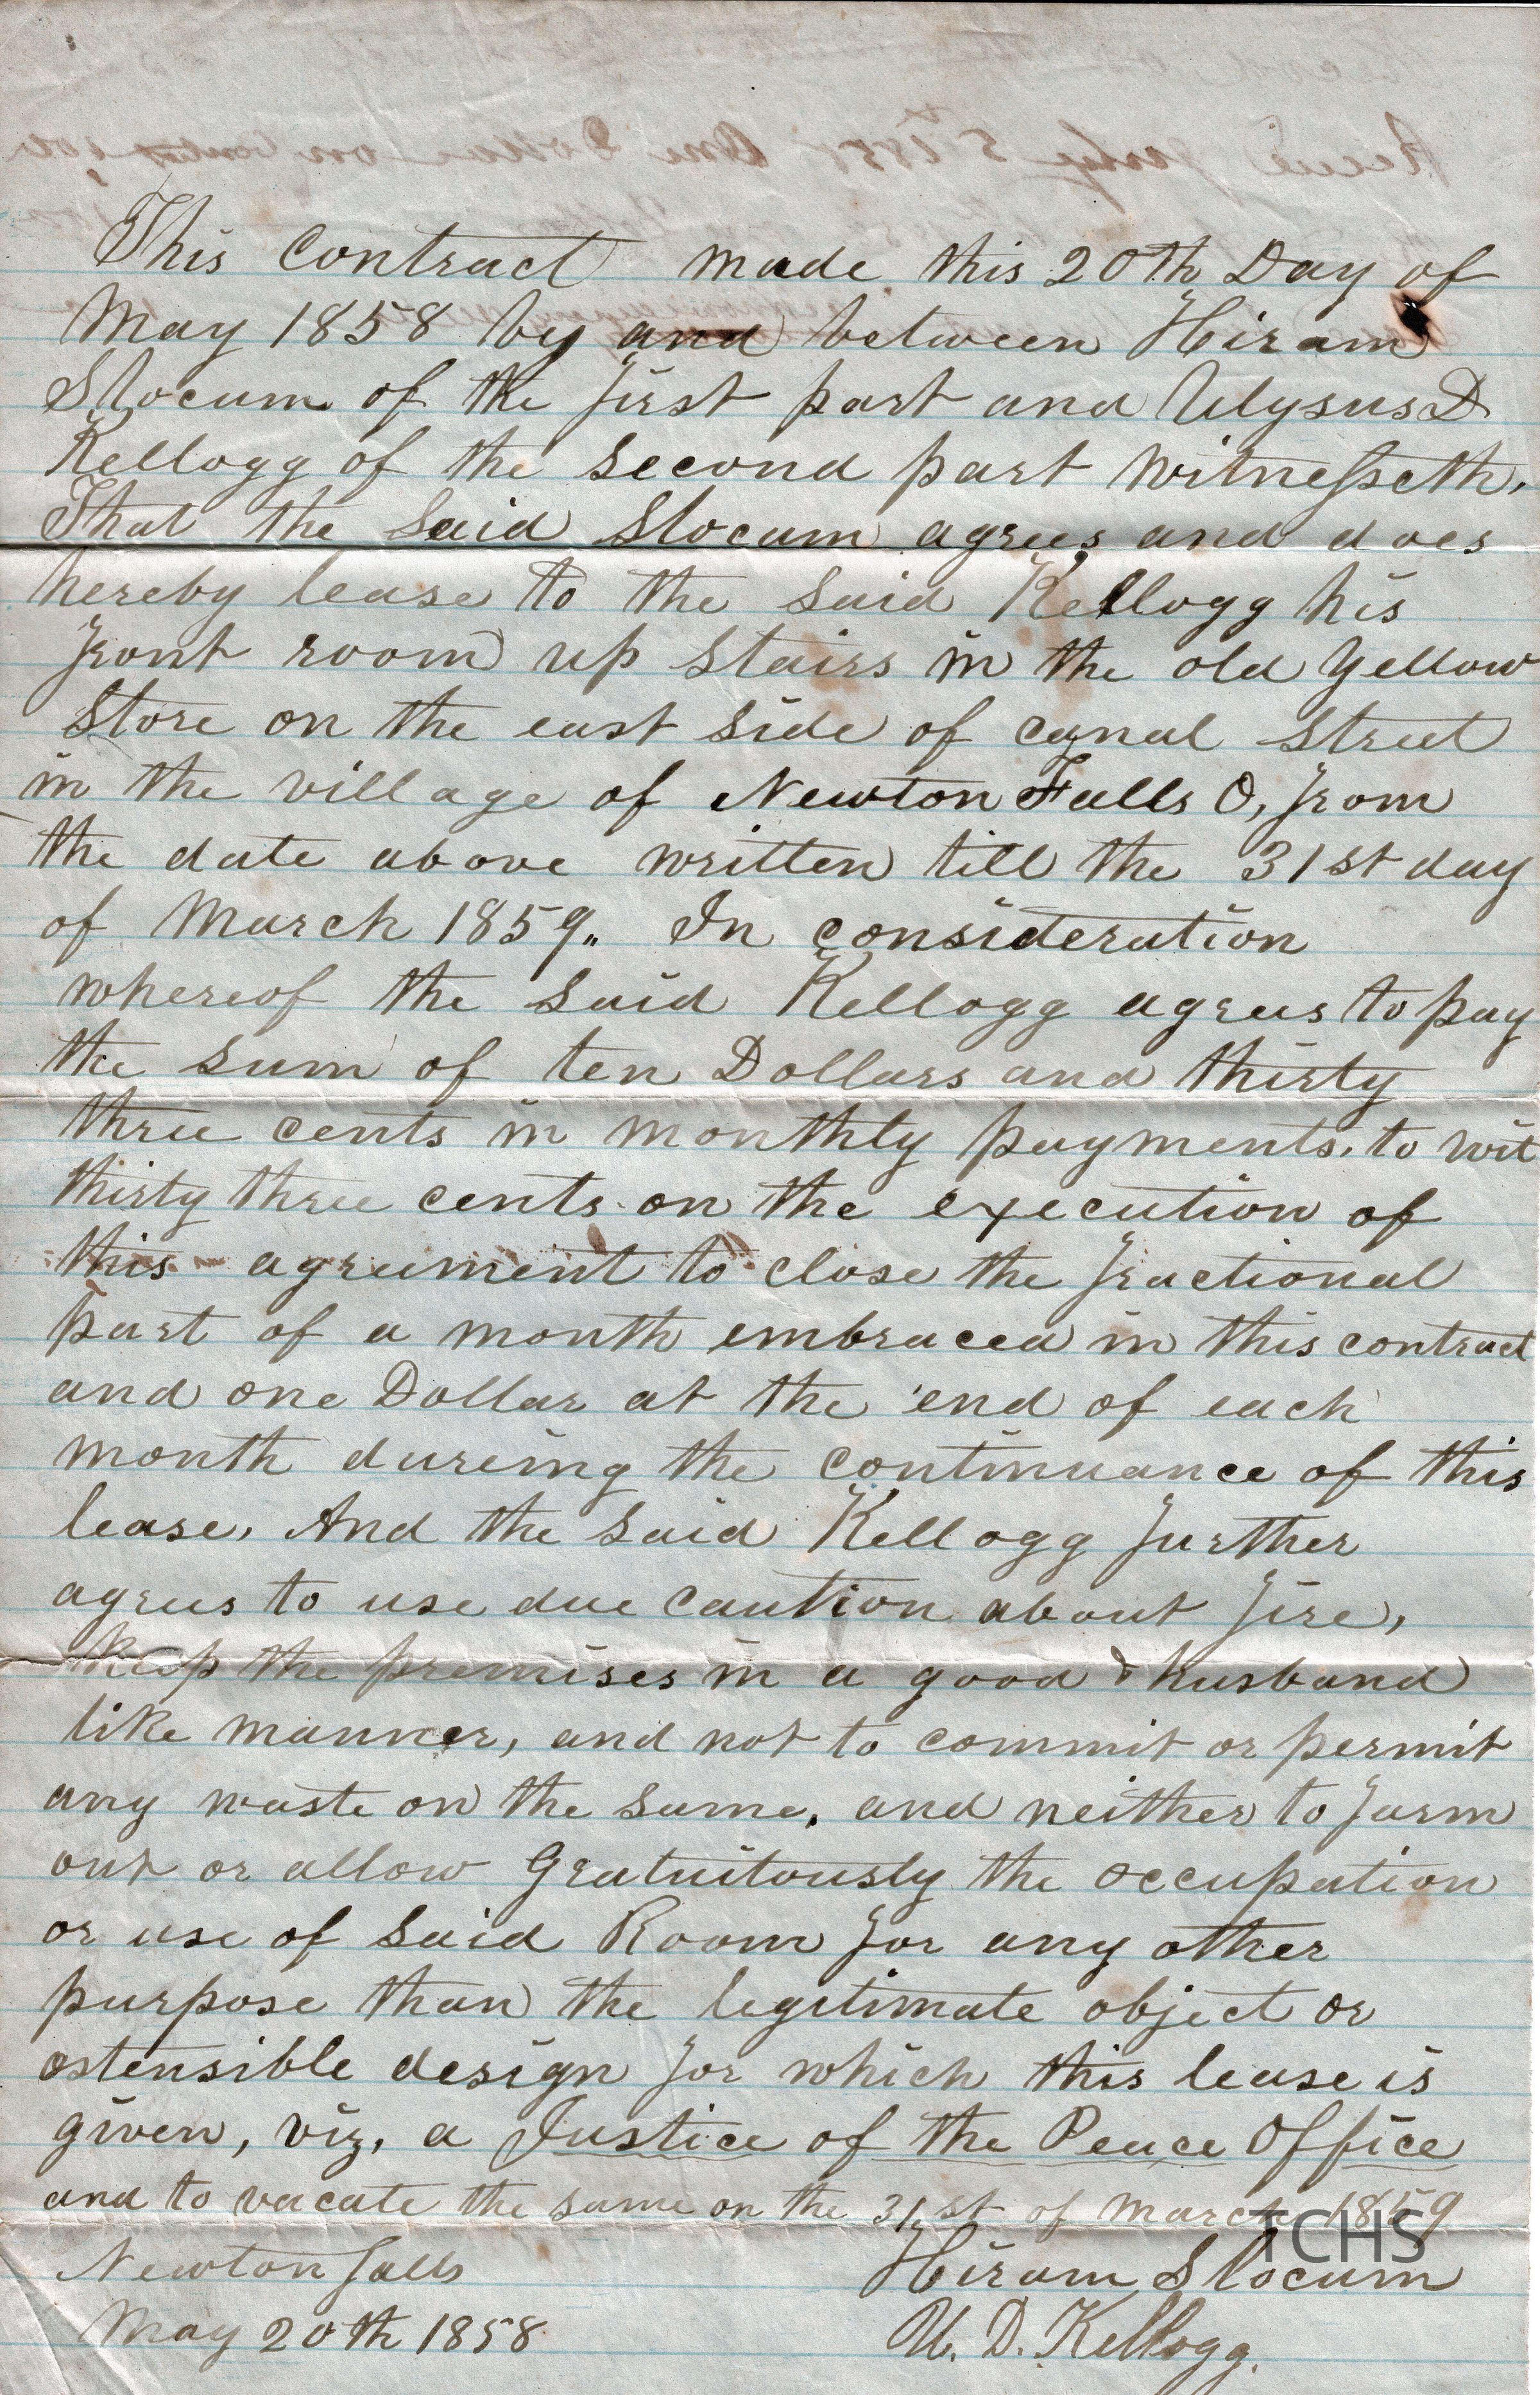 This Contract made this 20th Day of
May 1858 by and between Hiram
Slocum of the first part and Ulysus D
Kellogg of the second part witnesseth,
That the said Slocum agrees and does
hereby lease to the said Kellogg his
front room up stairs in the old yellow
Store on the east side of canal street
in the village of Newton Falls O, from
the date above written till the 31st day
of March 1859„ In consideration
whereof the said Kellogg agrees to pay
the sum of ten Dollars and thirty
three cents in monthly payments, to wit
thirty three cents on the execution of
this agreement to close the fractional
part of a month embraced in this contract
and one Dollar at the end of each
month dureing the continuance of this
lease, And the said Kellogg further
agrees to use due caution about fire,
keep the premises in a good & husband
like manner, and not to commit or permit
any waste on the same, and neither to farm
out or allow gratuitously the occupation
or use of said Room for any other
purpose than the legitimate object or
ostensible design for which this lease is
given, viz, a Justice of the Peace Office
and to vacate the same on the 31st of March 1859
Newton falls Hiram Slocum
May 20th 1858 U. D. Kellogg.
TCHS